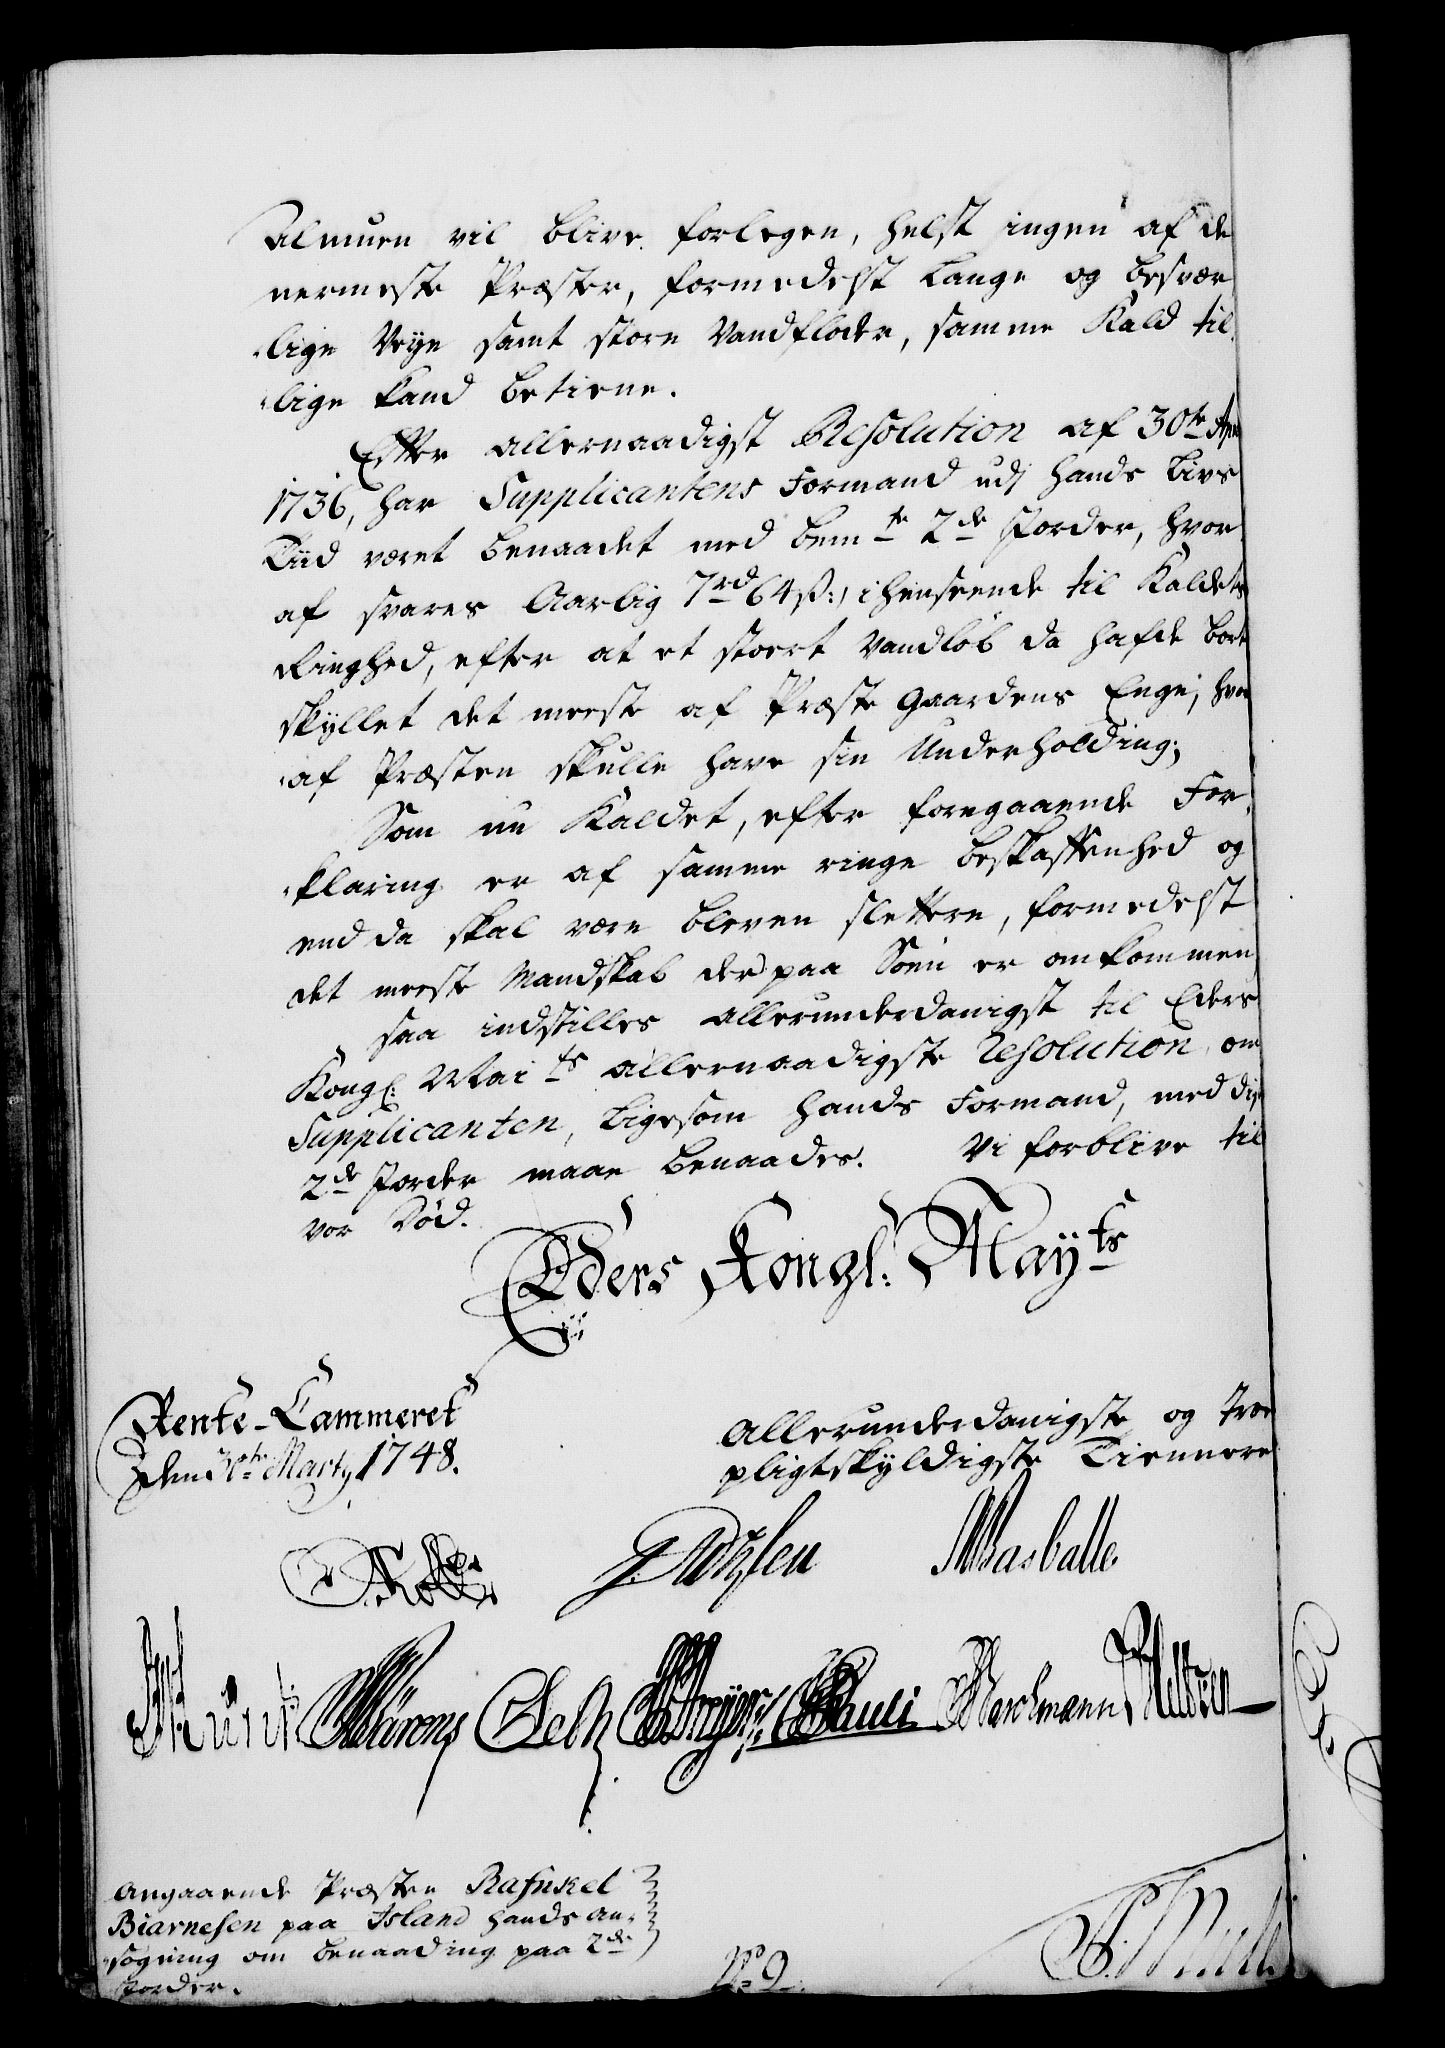 Almuen vil blive forlegen, helst ingen af de
nermeste Præster, formedelst lange og besvær
lige Veye samt store Vandfloder, samme Kald til
lige kand betiene.
Efter allernaadigst Resolution af 30te Apr
1736, har Supplicantens Formand udj hands Livs
Tiid været benaadet med bemte 2de Jorder, hvor
af svares Aarlig 7rd 64 ß:, i henseende til Kaldets
Ringhed, efter at et stoert Vandløb da hafde bort
skyllet det meeste af Præste Gaardens Enge, hvor
af Præsten skulle have sin Underholding;
Som nu Kaldet, efter foregaaende For
klaring er af samme ringe beskaffenhed og
end da skal være bleven slettere, formedelst
det meeste Mandskab der paa Søen er omkommen,
saa indstilles allerunderdanigst til Eders
Kongl: Maits allernaadigste Resolution, om
Supplicanten, ligesom hands Formand, med diſe
2de Jorder maae benaades. Vi forblive til
vor Død.
Eders Kongl: Mayts
Rente-Cammeret
den 30te Marty 1748.
Allerunderdanigste og troe
pligtskyldigste Tiennere
Pauli Marchmann
Angaaende Præsten Rafnkel
Biarnesen paa Island hands an-
søgning om benaading paa 2de
Jorder.
No 9.